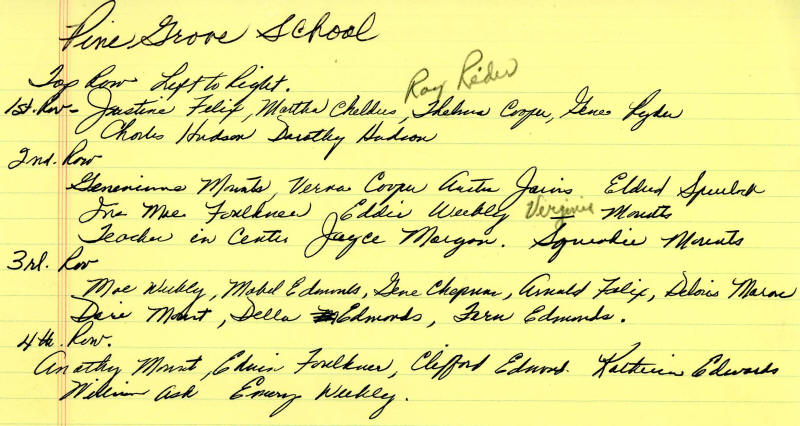 Pine Grove School
Ray Rider
Top Row Left to Right.
1st. Row - Justine Felix, Martha Childers, Thelma Cooper, Gene Ryder
Charles Hudson Dorothy Hudson
2nd. Row
Mounts, Verna Cooper Anita Eldred Spurlock
Ina Mae Foulkner Eddie Weekly Virginia Mounts
Teacher in Center Joyce Morgan. Squeakie Mounts
3rd. Row
Mae Weekly, Mabel Edmonds, Gene Chapman, Arnold Felix, Delois
Mount, Della Edmonds, Fern Edmonds.
4th. Row.
Mount, Edwin Foulkner, Clifford Edmond. Edwards
William Ash Emery Weekly.